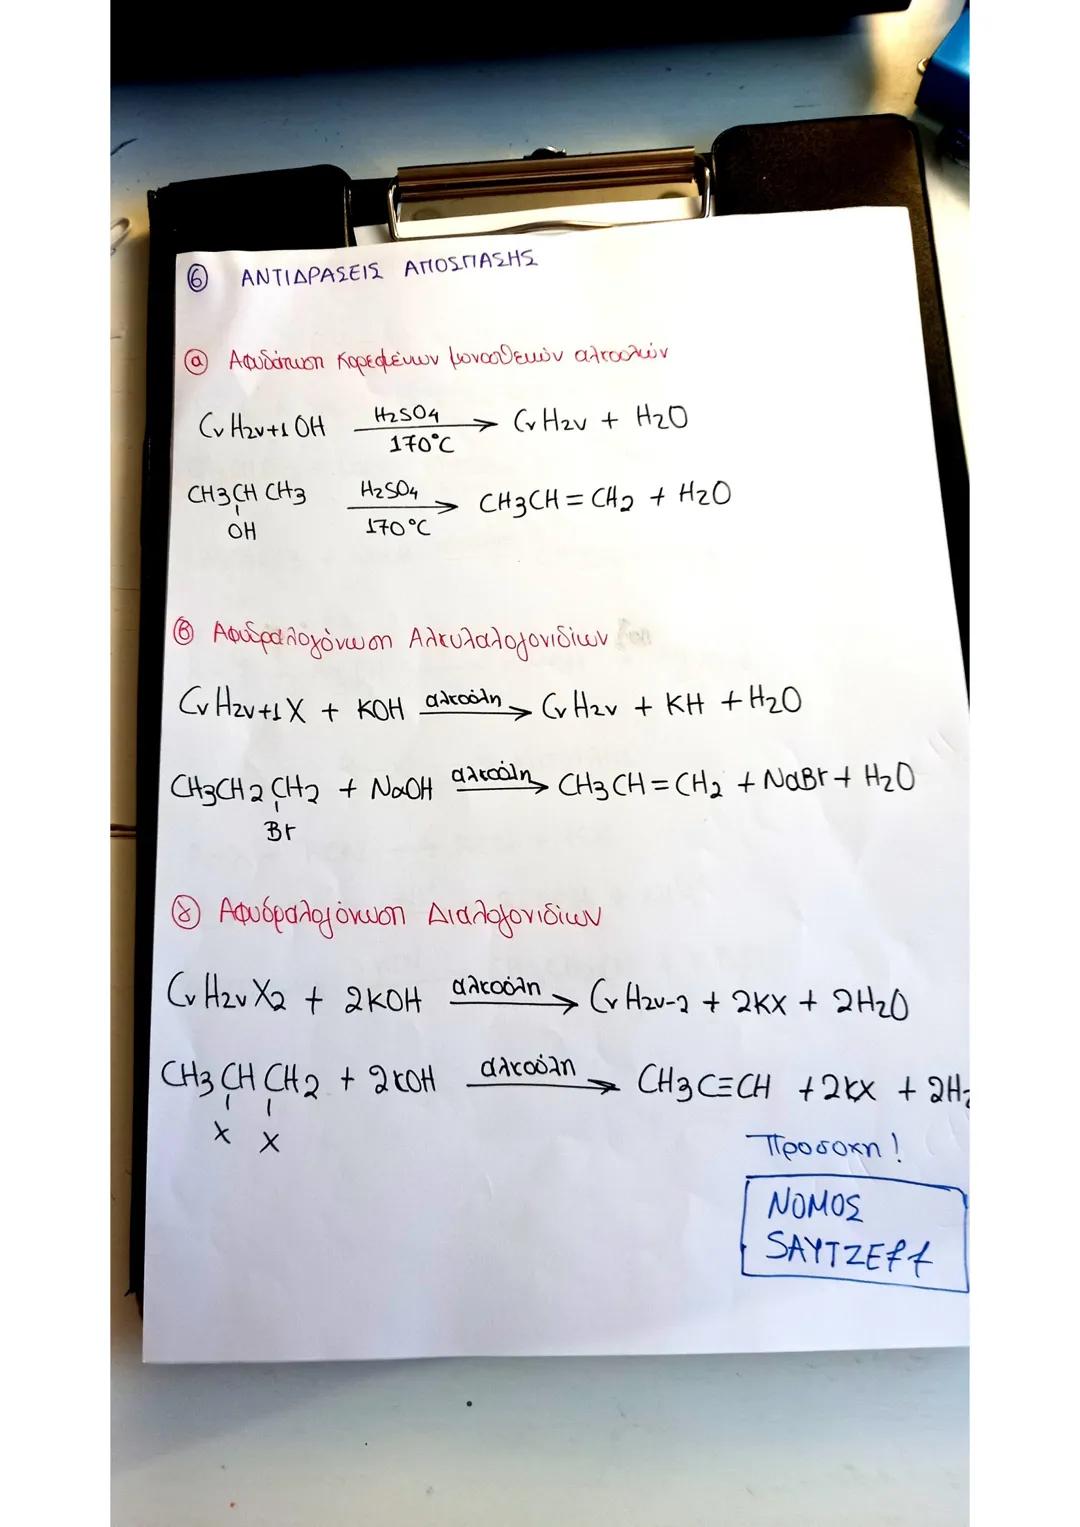 ⑥ ΑΝΤΙΔΡΑΣΕΙΣ ΑΠΟΣΠΑΣΗΣ
ⓐ Αφυδάτωση κορεσμένων μονοσθενών αλκοολών
CνH2ν+1OH H2SO4 170°C → CνH2ν + H2O
CH3CHCH3 H2SO4 170°C → CH3CH=CH2 + H2O
OH
ⓑ Αφυδραλογόνωση Αλκυλαλογονιδίων
CνH2ν+1X + KOH αλκοόλη → CνH2ν + KH + H2O
CH3CH2CH2 + NaOH αλκοόλη → CH3CH=CH2 + NaBr + H2O
Br
ⓨ Αφυδραλογόνωση Διαλογονιδίων
CνH2νX2 + 2KOH αλκοόλη → CνH2ν-2 + 2KX + 2H2O
CH3CHCH2 + 2KOH αλκοόλη → CH3C≡CH + 2KX + 2H2
X X
Προσοχη!
ΝΟΜΟΣ
SAYTZEff